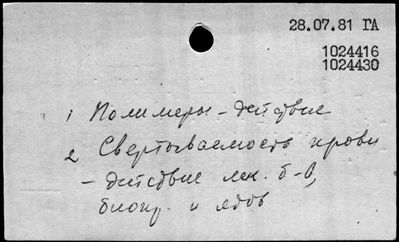 28.07.81 ГА
1024416
1024430
1 Полимеры - действие
2 Свертываемость крови
- действие лек. б-в,
биопр. и ядов